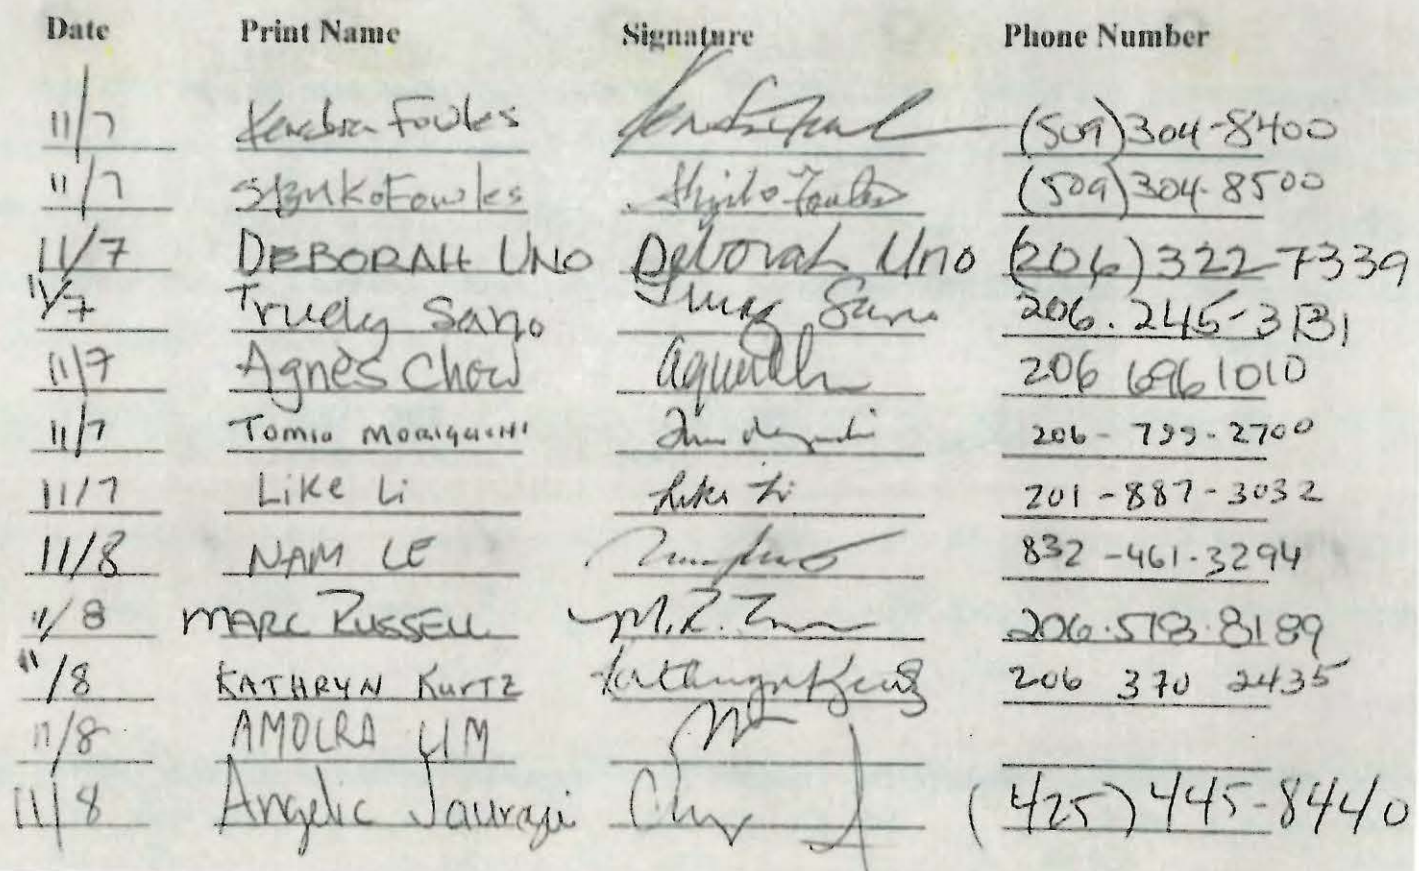 Date Print Name Signature Phone Number
11/7 Fowles (509)304-8400
11/7 Fowles (509)304-8500
11/7 DEBORAH UNO Deborah Uno (206)322-7339
11/7 Trudy Sano Sano 206.245-3131
11/7 Agnes Chow 206 696 1010
11/7 Tomio Moriguchi 206-799-2700
11/7 Like Li Like Li 201-887-3032
11/8 NAM LE 832-461-3294
11/8 MARC RUSSELL M.R. 8189
11/8 KATHRYN KURTZ Kathryn Kurtz 206 370 2435
11/8 LIM
11/8 Angelic (425)445-8440